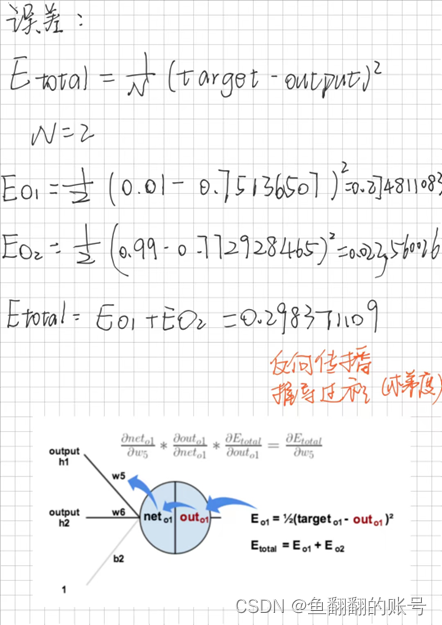 误差:
Etotal = 1/N (target - output)²
N=2
EO1 = 1/2 (0.01 - 0.75136507)² = 0.274811083
EO2 = 1/2 (0.99 - 0.772928465)² = 0.023560026
Etotal = EO1 + EO2 = 0.298371109
反向传播
推导过程 (求梯度)
∂net_o1/∂w5 * ∂out_o1/∂net_o1 * ∂E_total/∂out_o1 = ∂E_total/∂w5
output
h1
w5
output
h2
w6
net o1 out o1
E o1 = ½(target o1 - out o1)²
E total = E o1 + E o2
b2
1
CSDN @鱼翻翻的账号